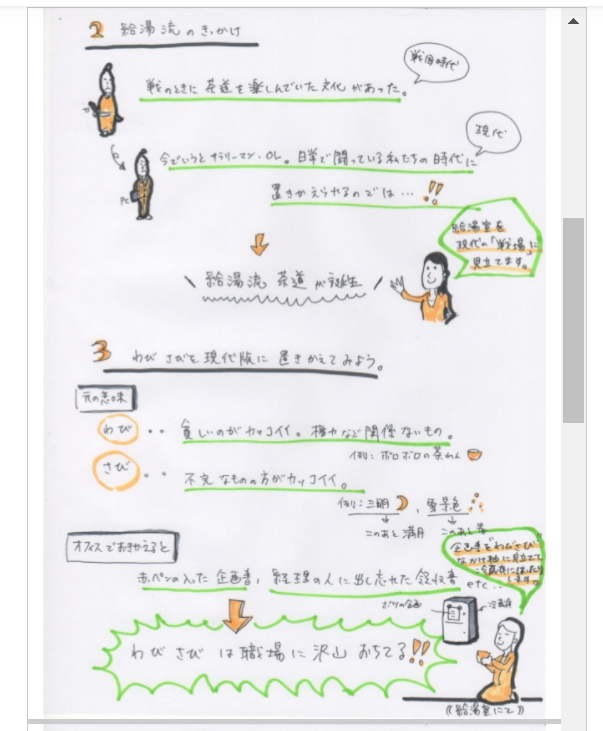 2 給湯流のきっかけ
戦国時代
戦のときに 茶道を楽しんでいた文化があった。
現代
今でいうと サラリーマン・OL。日常で闘っている私たちの時代に
PC
置きかえられるのでは…!!
給湯室を
現代の「戦場」に
見立てます。
\ 給湯流 茶道 が誕生 /
3 わび さびを 現代版に 置きかえてみよう。
元の意味
わび ‥ 貧しいのがカッコイイ。権力など関係ないもの。
例:ボロボロの茶わん
さび ‥ 不完なものの方がカッコイイ。
例:三日月、雪景色
このあと満月 このあと春
オフィスでおきかえると
企画書をわびさび
なかけ軸に見立てて
冷蔵庫にはったり
します。
赤ペンの入った企画書, 経理の人に出し忘れた領収書 etc‥
ボツの企画
冷蔵庫
わび さび は 職場に 沢山 おちてる!!
《給湯室にて》